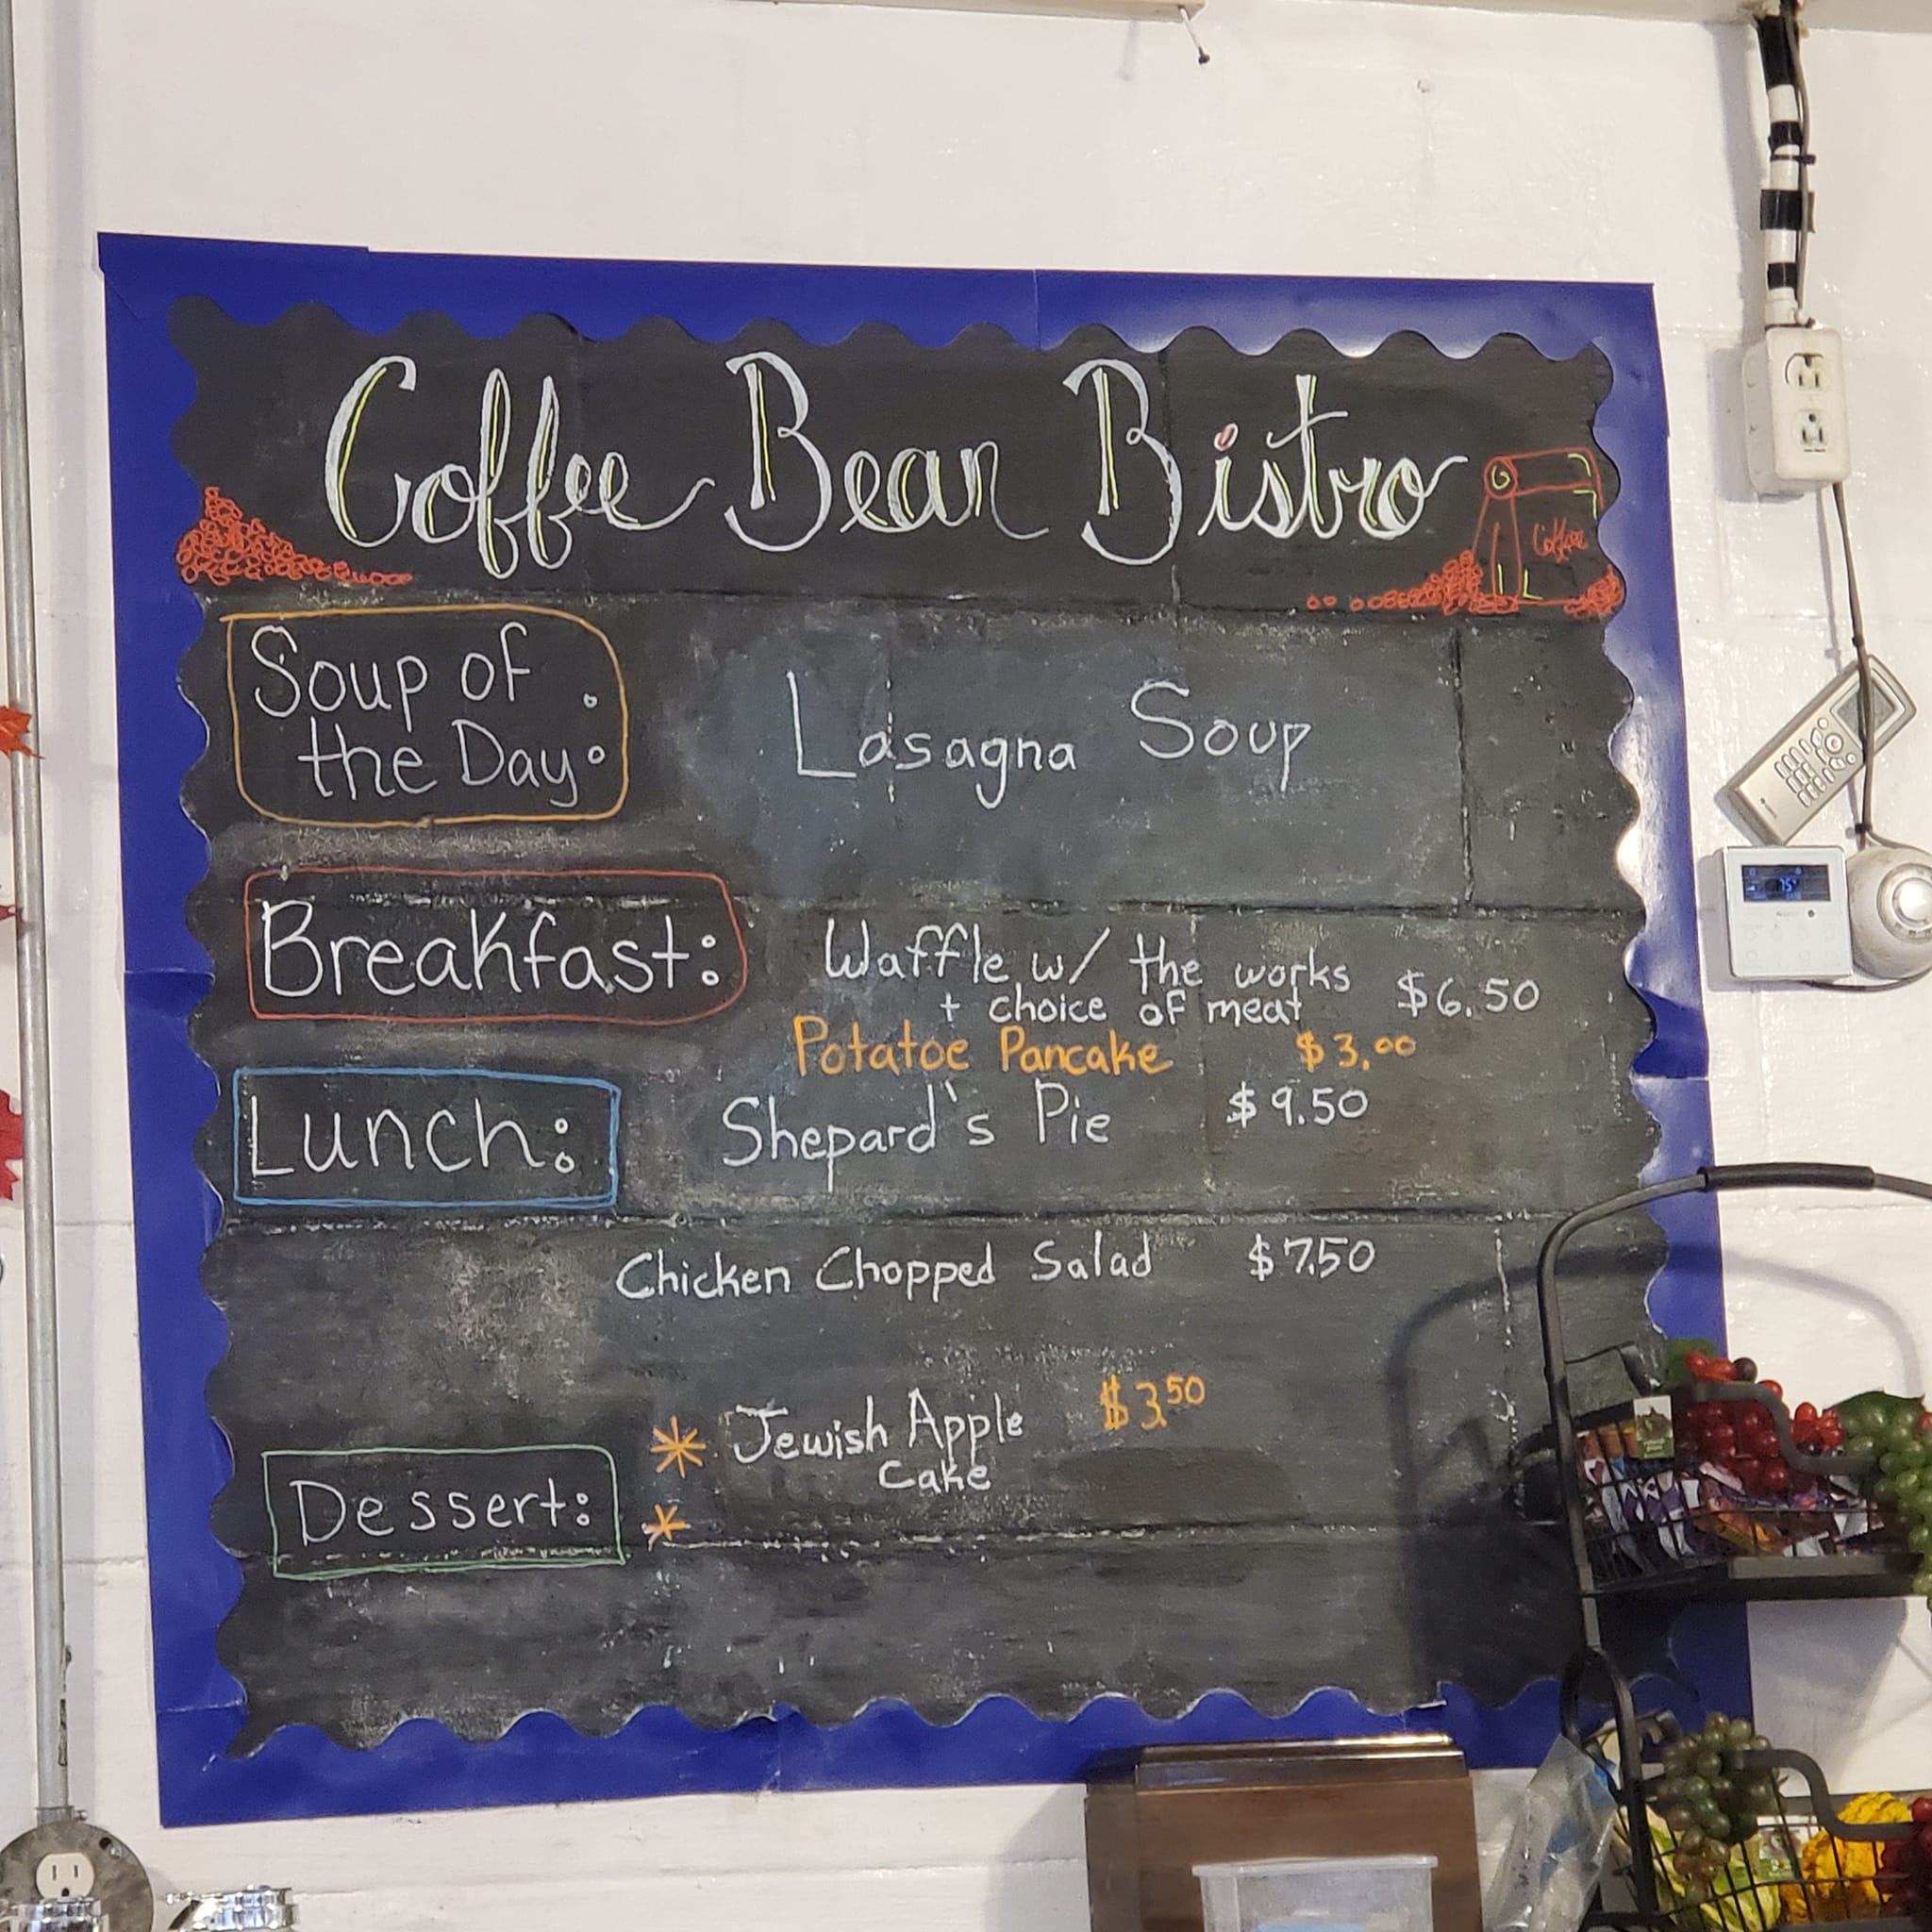 Coffee Bean Bistro
Coffee
Soup of
the Day:
Lasagna Soup
Breakfast:
Waffle w/ the works
+ choice of meat $6.50
Potatoe Pancake $3.00
Lunch:
Shepard's Pie $9.50
Chicken Chopped Salad $7.50
Dessert:
* Jewish Apple $3.50
Cake
*